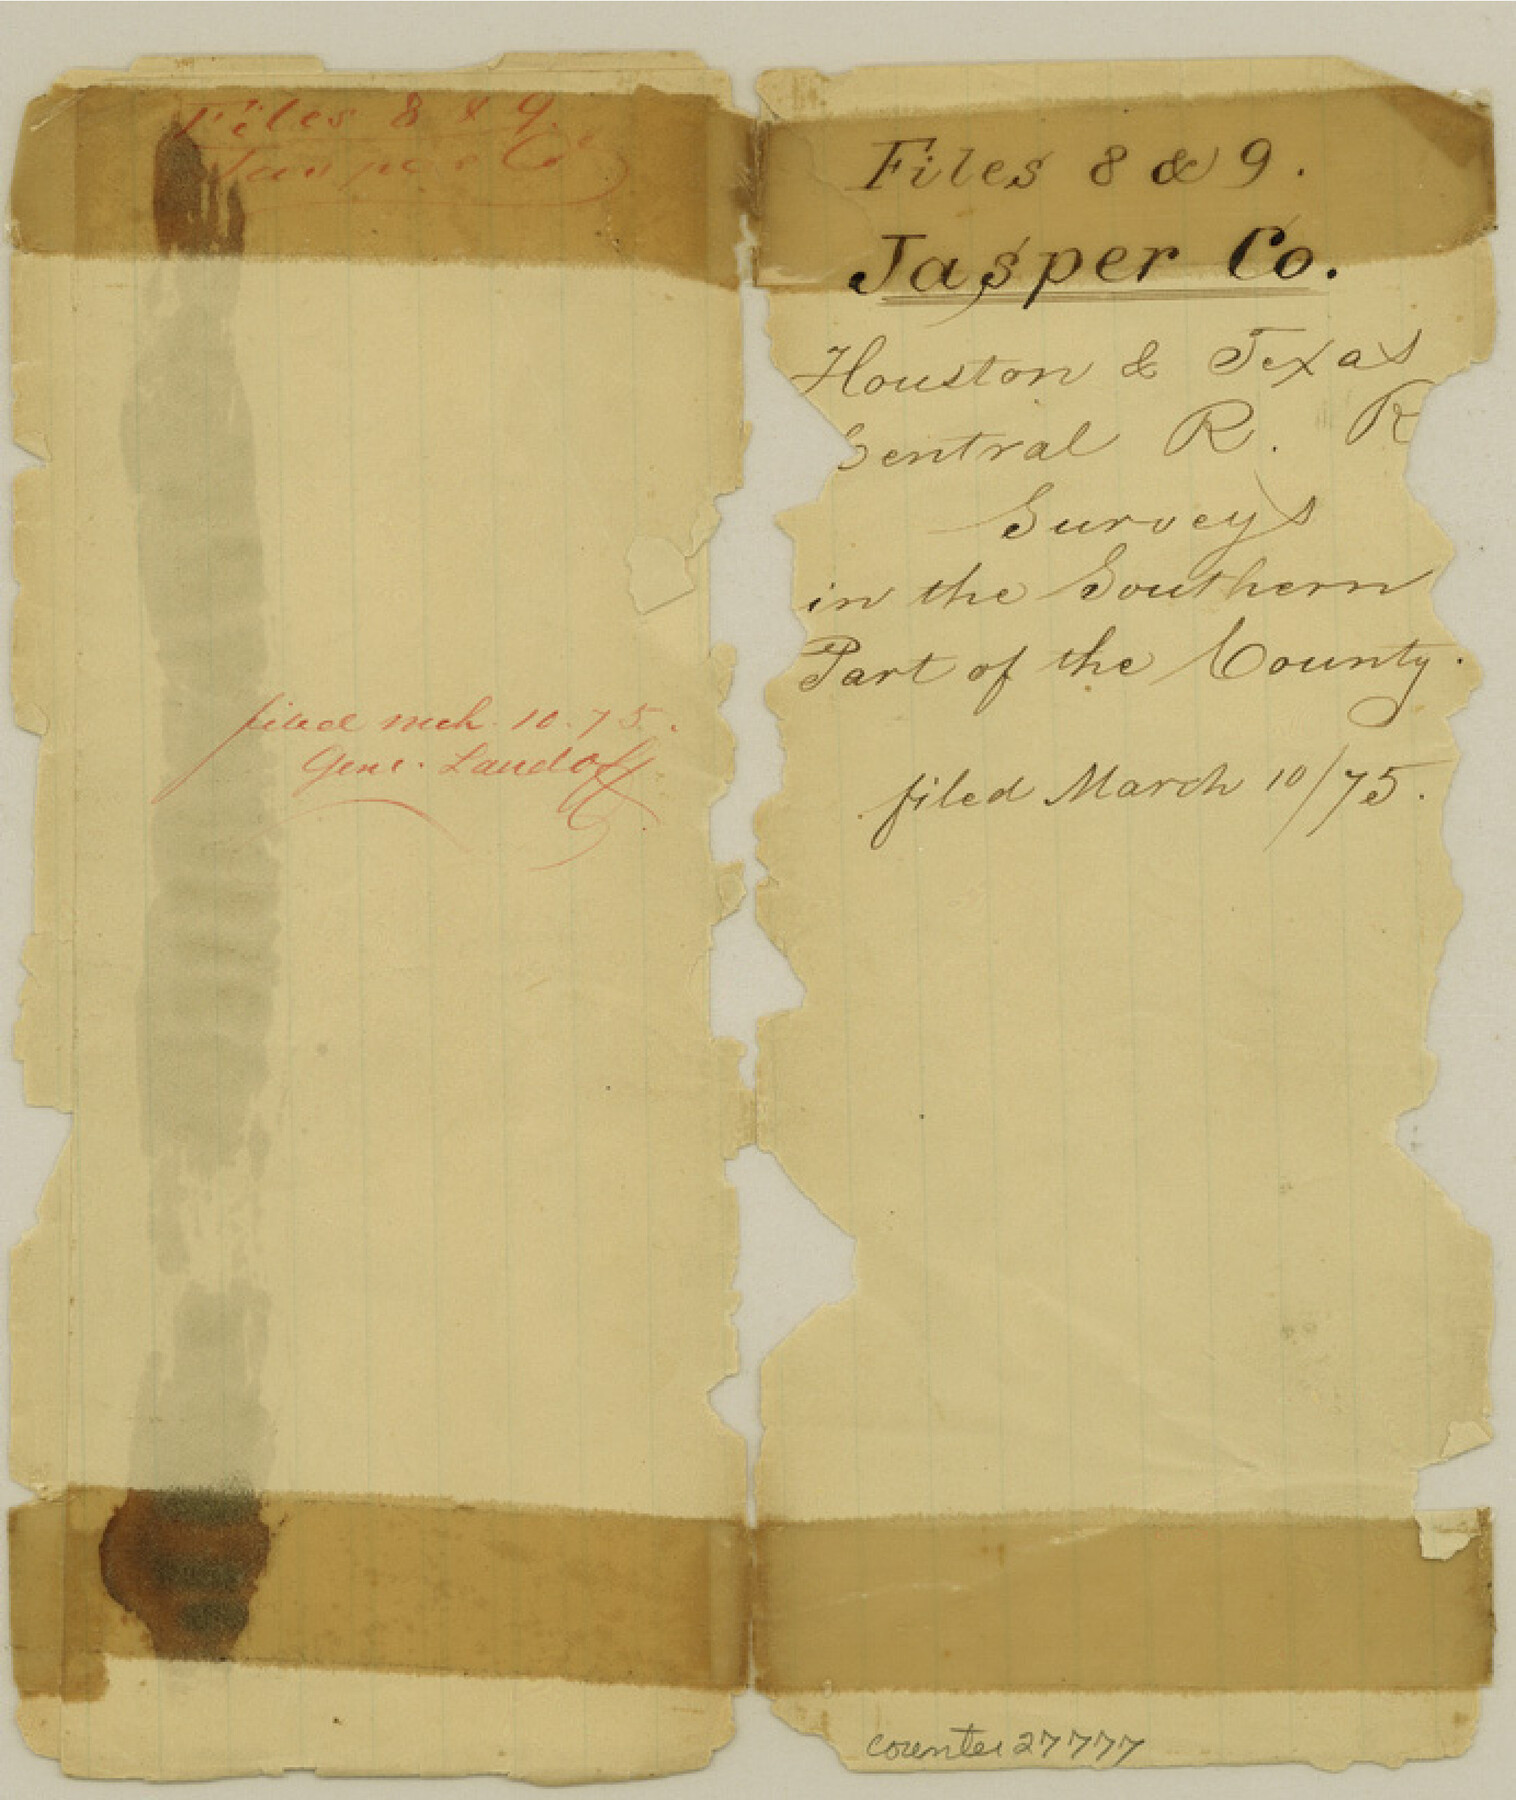 Files 8 & 9.
Jasper Co.
filed Mch. 10. 75.
Genl. Land Off
Files 8 & 9.
Jasper Co.
Houston & Texas
Central R. R
Surveys
in the Southern
Part of the County.
filed March 10/75.
counter 27777